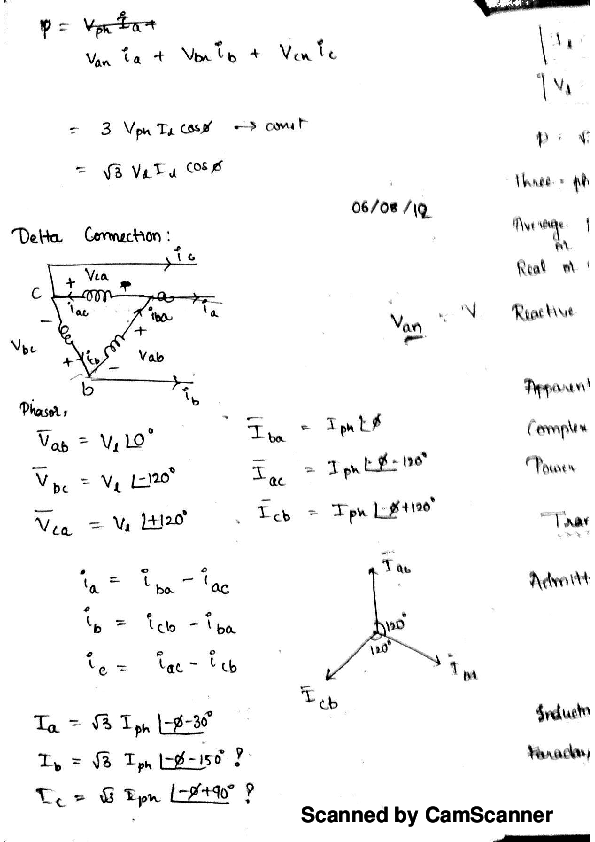 p = V_ph I_a +
V_an i_a + V_bn i_b + V_cn i_c
= 3 V_ph I_l cos ø → const
= √3 V_l I_l cos ø
06/08/12
Delta Connection:
i_c
V_ca
C + a
i_ac i_ba i_a
V_bc - + i_cb + V_ab
-
b i_b
V_an = V
Phasor,
V̄_ab = V_l ∠0°
V̄_bc = V_l ∠-120°
V̄_ca = V_l ∠+120°
Ī_ba = I_ph ∠-ø
Ī_ac = I_ph ∠-ø-120°
Ī_cb = I_ph ∠-ø+120°
i_a = i_ba - i_ac
i_b = i_cb - i_ba
i_c = i_ac - i_cb
120°
120°
Ī_cb
I_a = √3 I_ph ∠-ø-30°
I_b = √3 I_ph ∠-ø-150° ?
I_c = √3 I_ph ∠-ø+90° ?
I_l
V_l
p = √
Three - ph
Average
Real
Reactive
Apparent
Complex
Power
Tran
Admitt
Induct
Faraday
Scanned by CamScanner